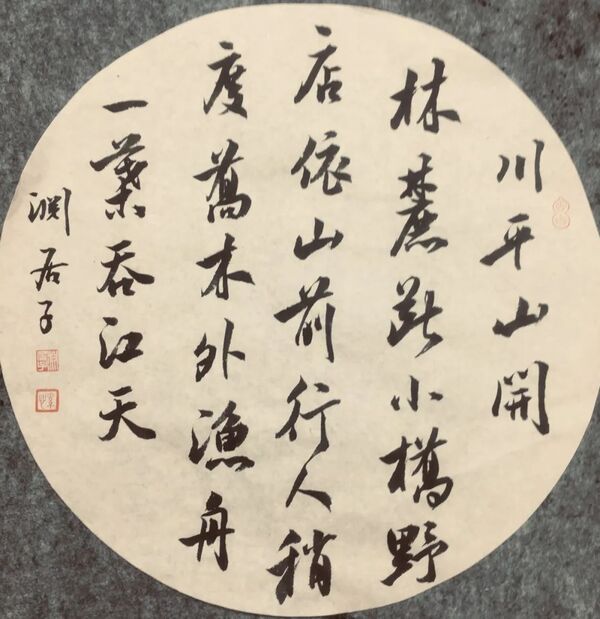 川平山開
林麓断小橋野
店依山前行人稍
度喬木外漁舟
一葉吞江天
渊居子